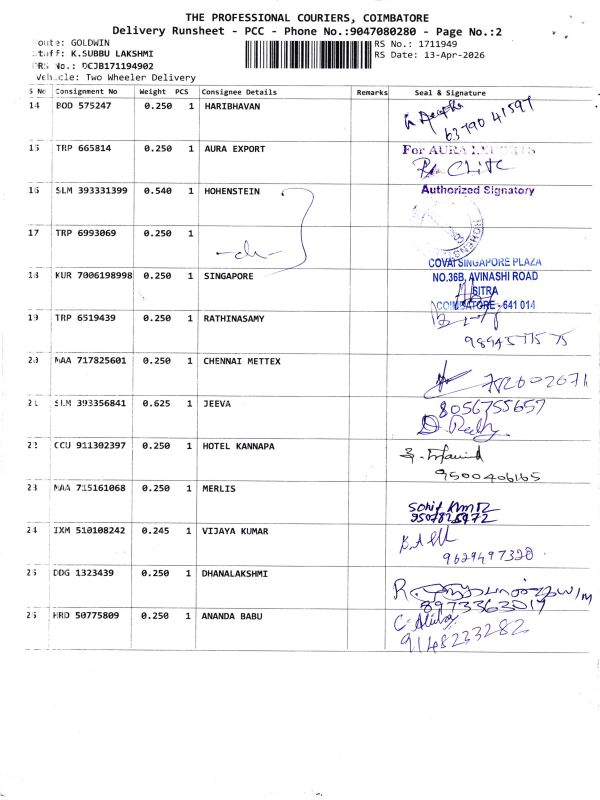 THE PROFESSIONAL COURIERS, COIMBATORE
Delivery Runsheet - PCC - Phone No.:9047080280 - Page No.:2
oute: GOLDWIN
RS No.: 1711949
taff: K.SUBBU LAKSHMI
RS Date: 13-Apr-2026
DRS No.: DCJB171194902
Vehicle: Two Wheeler Delivery
S No Consignment No Weight PCS Consignee Details Remarks Seal & Signature
14 BOD 575247 0.250 1 HARIBHAVAN
63790 41597
15 TRP 665814 0.250 1 AURA EXPORT
For AURA
16 SLM 393331399 0.540 1 HOHENSTEIN
Authorized Signatory
17 TRP 6993069 0.250 1
COVAI SINGAPORE PLAZA
18 KUR 7006198998 0.250 1 SINGAPORE
NO.36B, AVINASHI ROAD
SITRA
COIMBATORE - 641 014
19 TRP 6519439 0.250 1 RATHINASAMY
20 MAA 717825601 0.250 1 CHENNAI METTEX
21 SLM 393356841 0.625 1 JEEVA
8056755657
22 CCU 911302397 0.250 1 HOTEL KANNAPA
9500406165
23 MAA 715161068 0.250 1 MERLIS
24 IXM 510108242 0.245 1 VIJAYA KUMAR
9629497320
25 DDG 1323439 0.250 1 DHANALAKSHMI
8973363019
26 HRD 50775809 0.250 1 ANANDA BABU
9148233282